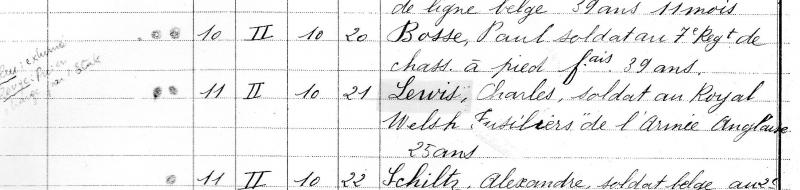 de ligne belge 39 ans 11 mois
10 II 10 20 Bosse, Paul soldat au 7e Regt de
chass. à pied f.ais. 39 ans.
11 II 10 21 Lewis, Charles, soldat au Royal
Welsh Fusiliers de l'Armée Anglaise
25 ans
11 II 10 22 Schiltz, Alexandre, soldat belge au 2e